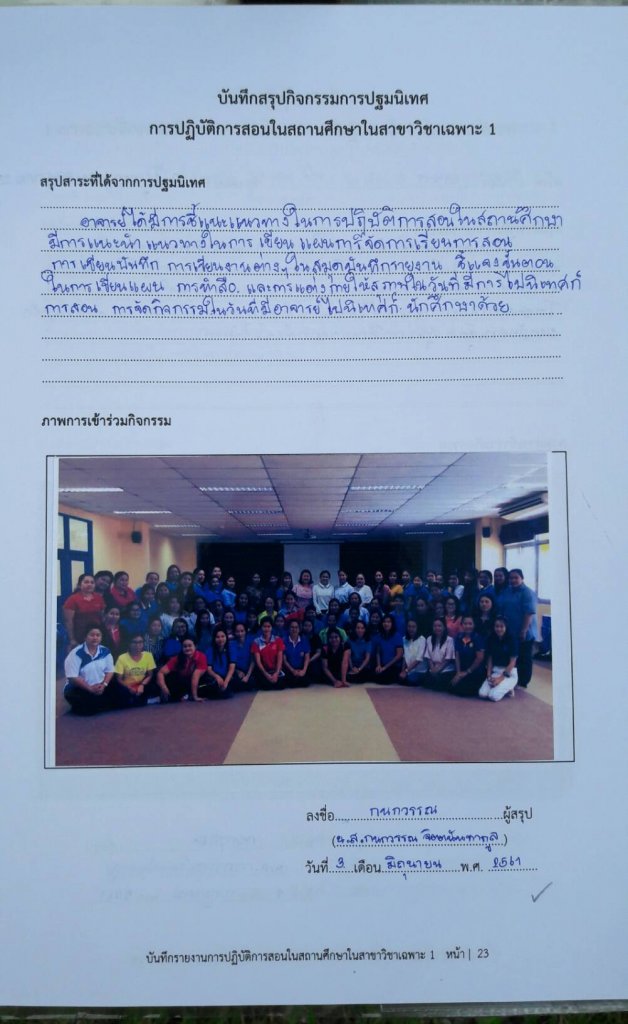 บันทึกสรุปกิจกรรมการปฐมนิเทศ
การปฏิบัติการสอนในสถานศึกษาในสาขาวิชาเฉพาะ 1
สรุปสาระที่ได้จากการปฐมนิเทศ
อาจารย์ได้มีการชี้แนะแนวทางในการปฏิบัติการสอนในสถานศึกษา
มีการแนะนำ แนวทางในการ เขียน แผนการจัดการเรียนการสอน
การเขียนบันทึก การเขียนงานต่างๆ ในสมุดบันทึกรายงาน ชี้แจงขั้นตอน
ในการเขียนแผน การทำสื่อ และการแต่งกายให้สุภาพ ในวันที่มีการไปนิเทศก์
การสอน การจัดกิจกรรมในวันที่มีอาจารย์ไปนิเทศก์ นักศึกษาด้วย
ภาพการเข้าร่วมกิจกรรม
ลงชื่อ กนกวรรณ ผู้สรุป
(น.ส.กนกวรรณ )
วันที่ 3 เดือน มิถุนายน พ.ศ. 2561
บันทึกรายงานการปฏิบัติการสอนในสถานศึกษาในสาขาวิชาเฉพาะ 1 หน้า | 23